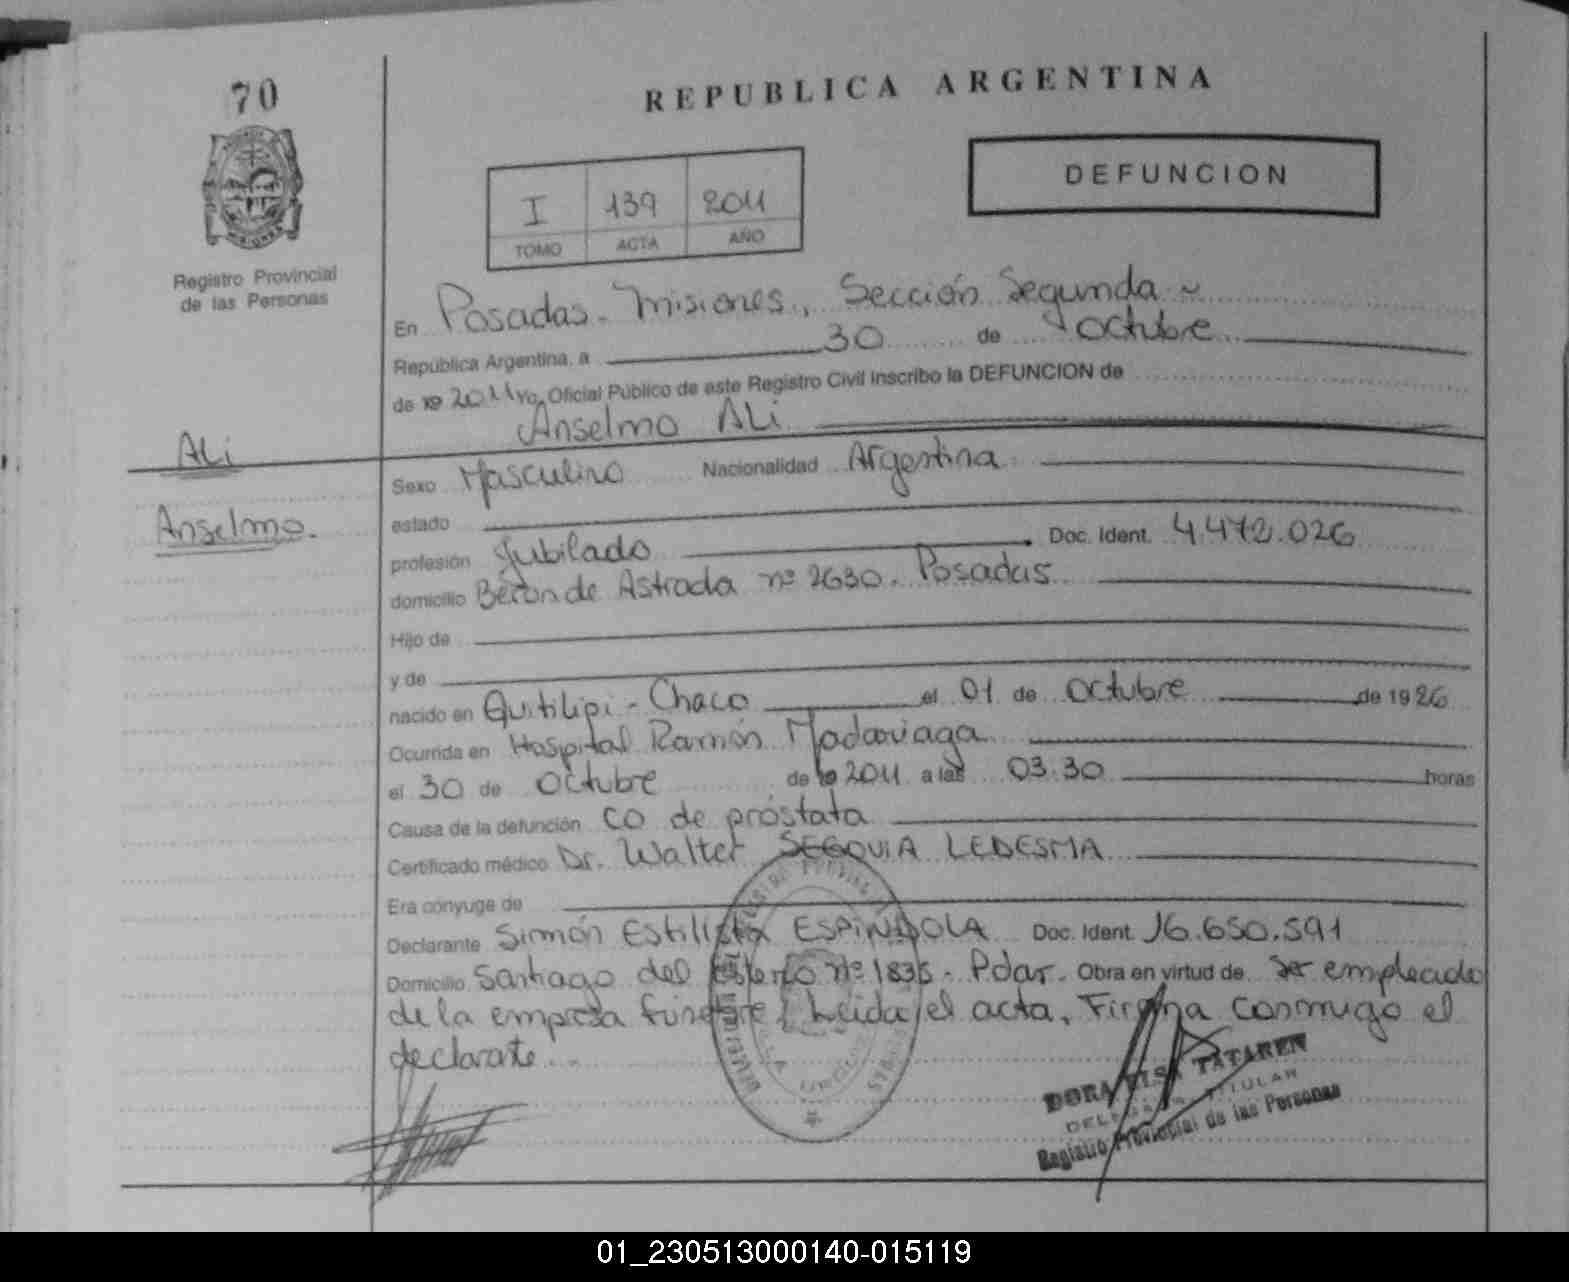 70
REPUBLICA ARGENTINA
DEFUNCION
I 139 2011
TOMO ACTA AÑO
Registro Provincial
de las Personas
En Posadas. Misiones, Sección Segunda
República Argentina, a 30 de Octubre
de 19 2011 Yo, Oficial Público de este Registro Civil inscribo la DEFUNCION de
Anselmo ALi
ALi
Anselmo.
Sexo Masculino Nacionalidad Argentina
estado
profesión Jubilado Doc. Ident. 4.472.026
domicilio Berón de Astrada nº 2630. Posadas
Hijo de
y de
nacido en Quitilipi - Chaco el 01 de Octubre de 1926
Ocurrida en Hospital Ramón Madariaga
el 30 de Octubre de 19 2011 a las 03.30 horas
Causa de la defunción CO de próstata
Certificado médico Dr. Walter SEGOVIA LEDESMA
Era cónyuge de
Declarante Simón Estilista ESPINDOLA Doc. Ident. 16.650.591
Domicilio Santiago del Estero nº 1835 - Pdas. Obra en virtud de Ser empleado
de la empresa fúnebre. Leida el acta, Firma conmigo el
declarante.
DORA ELSA TATAREN
DELEGADA TITULAR
Registro Provincial de las Personas
01_230513000140-015119